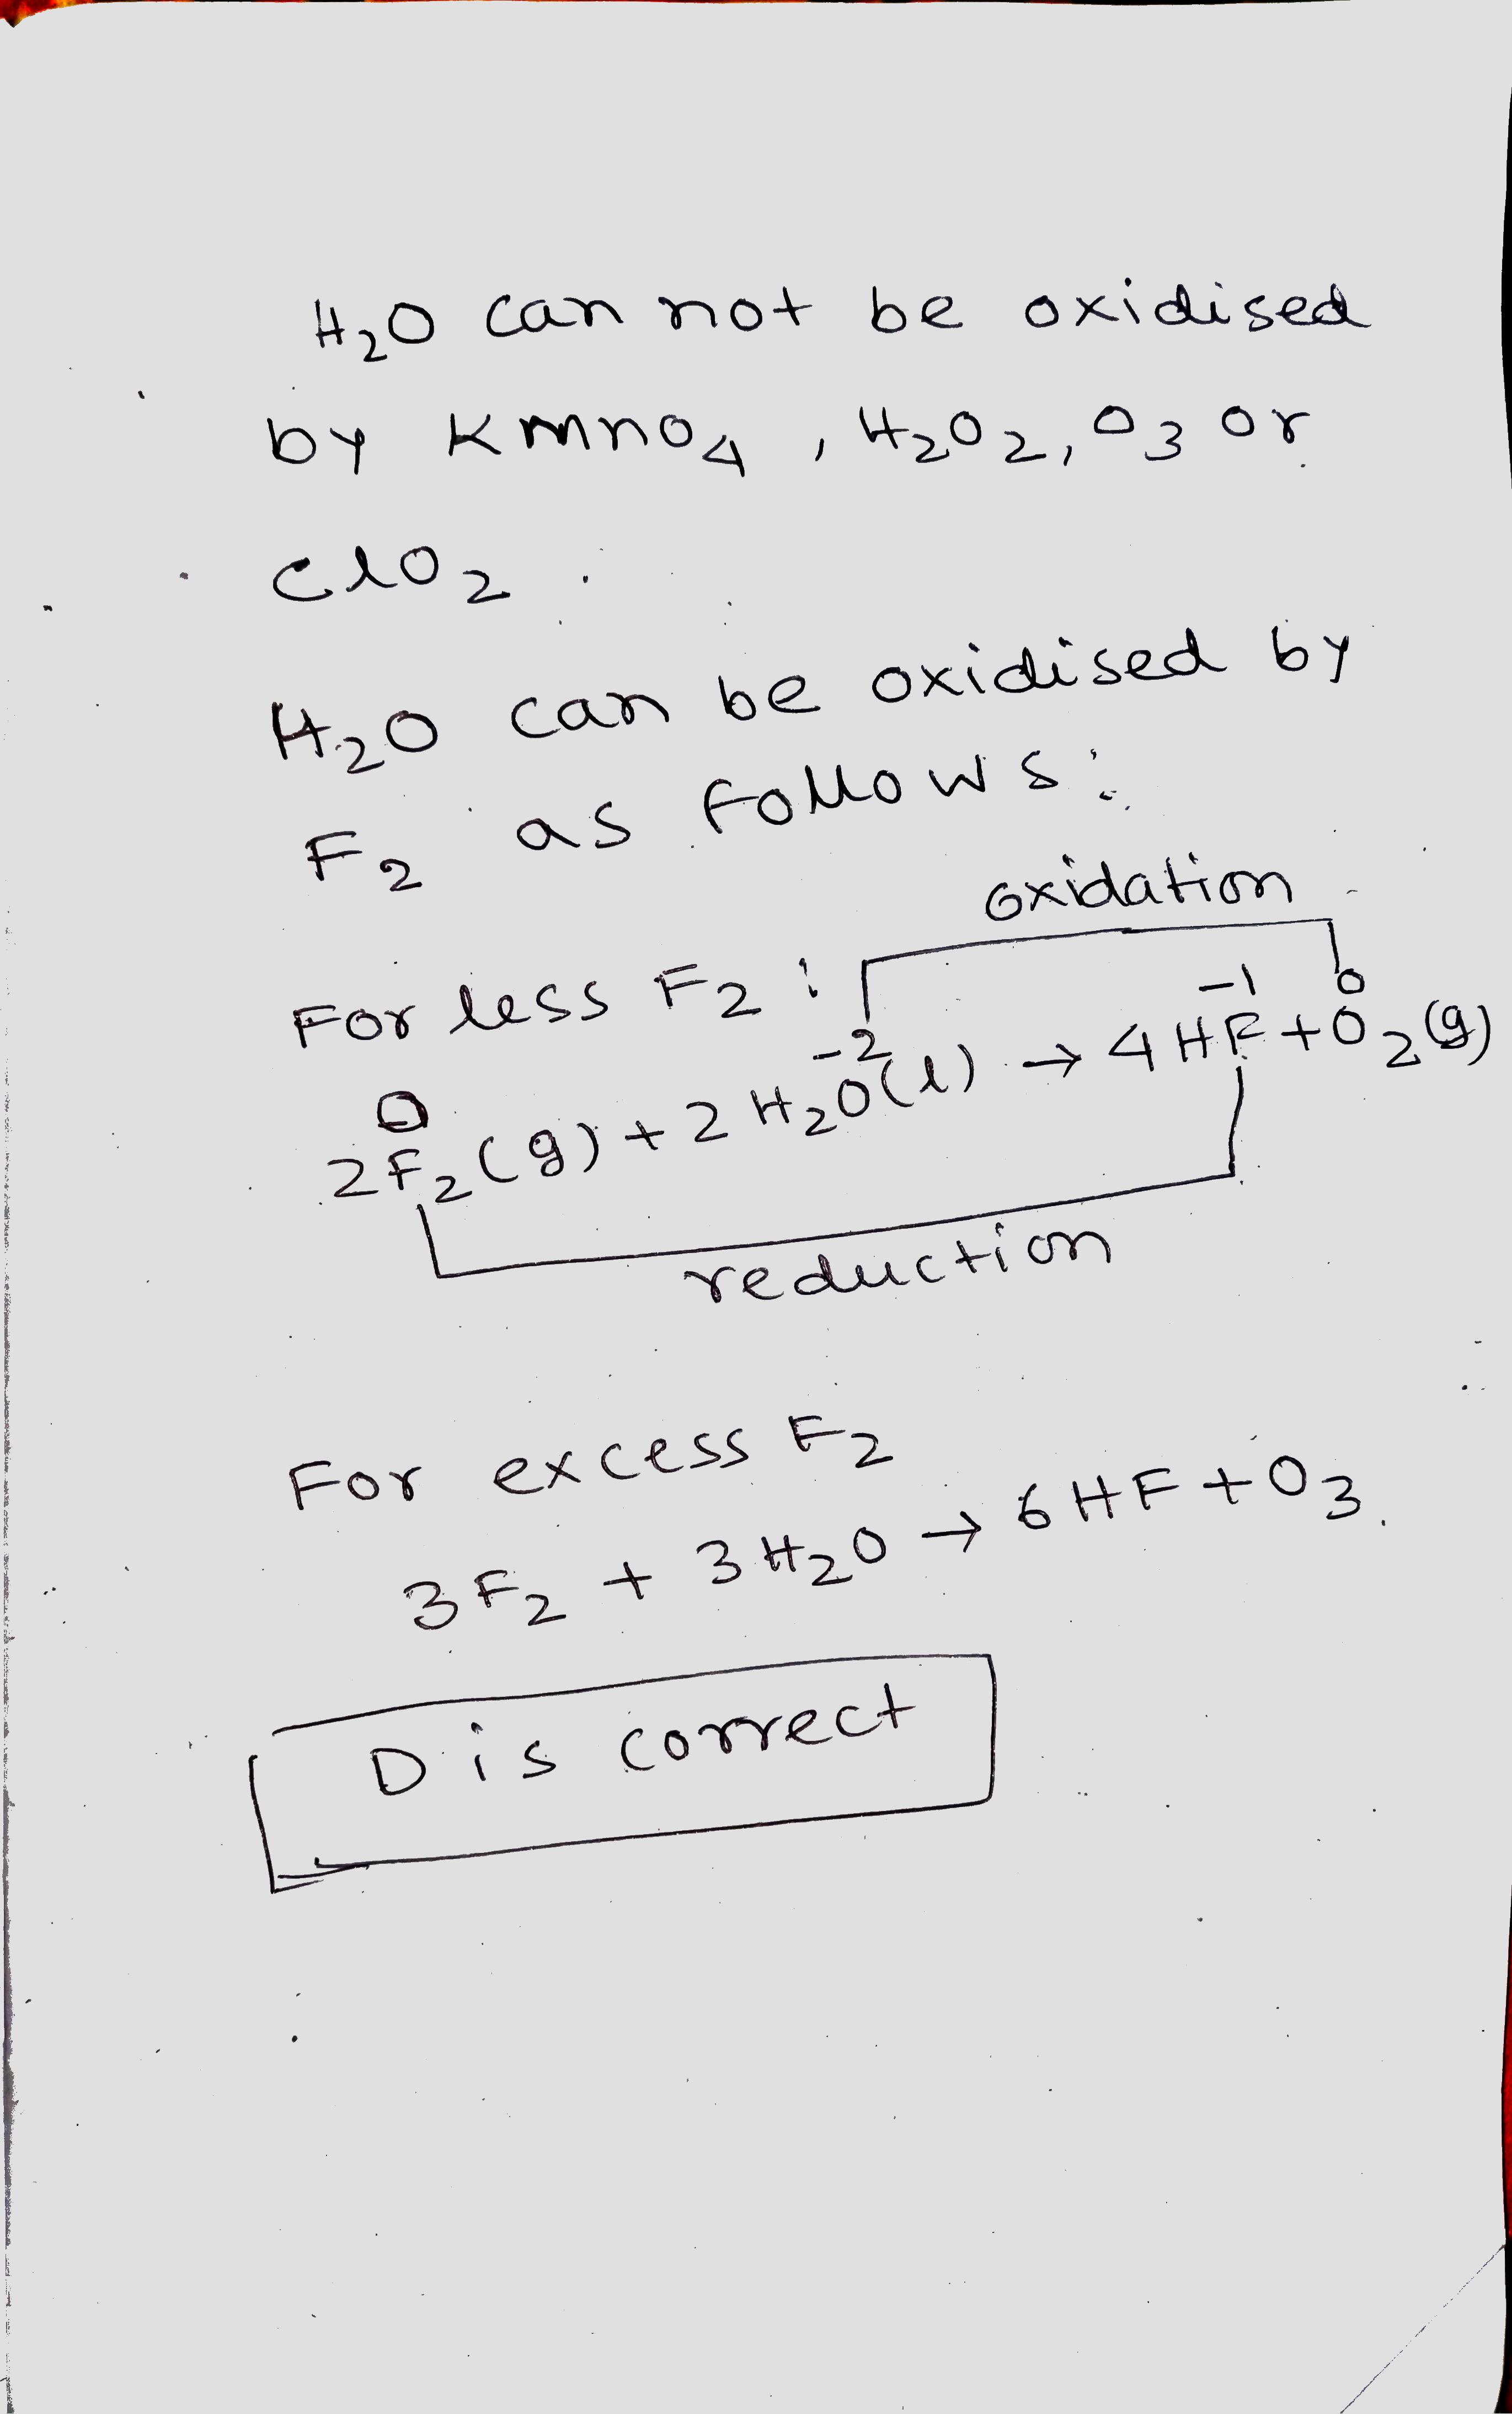 H₂O can not be oxidised
by KMnO₄, H₂O₂, O₃ or
ClO₂.
H₂O can be oxidised by
F₂ as follows:
oxidation
For less F₂:
0 -2 -1 0
2F₂(g) + 2H₂O(l) → 4HF + O₂(g)
reduction
For excess F₂
3F₂ + 3H₂O → 6HF + O₃.
D is correct